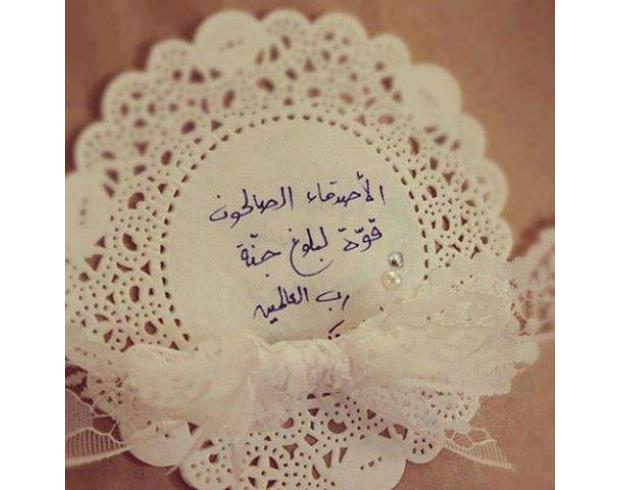 الأصدقاء الصالحون
قوّة لبلوغ جنّة
رب العالمين